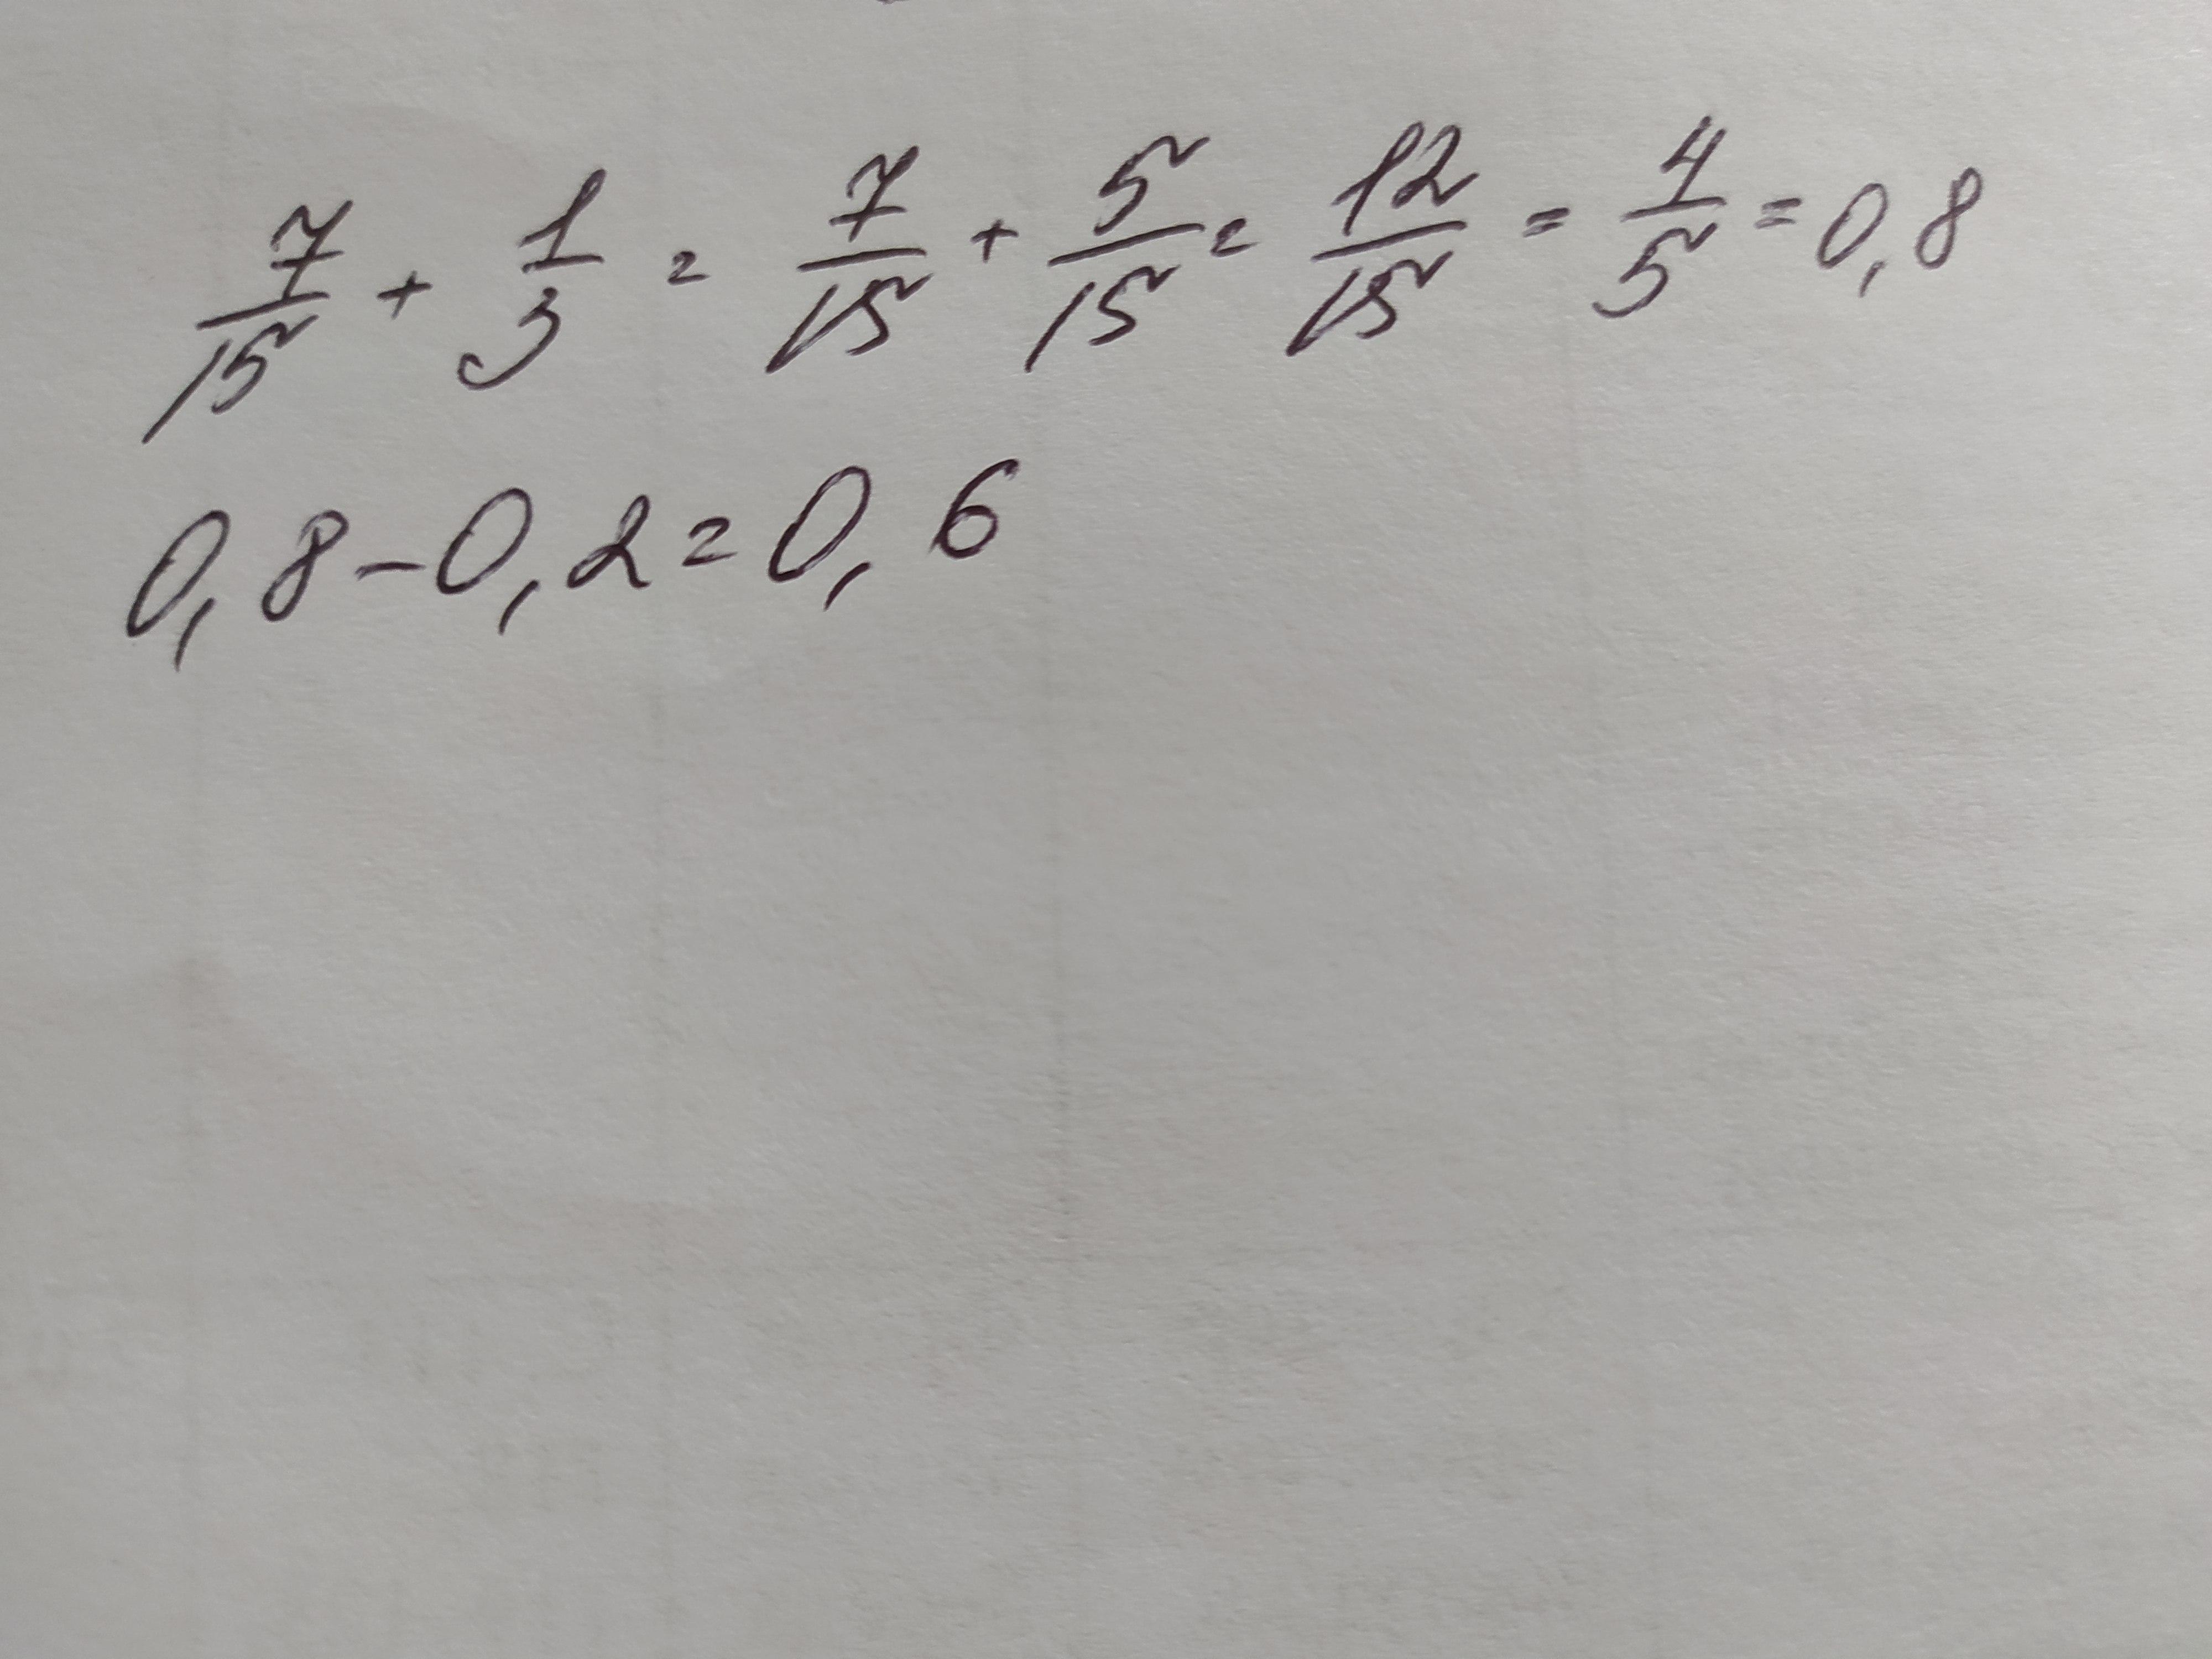 7/15 + 1/3 = 7/15 + 5/15 = 12/15 = 4/5 = 0,8
0,8 - 0,2 = 0,6